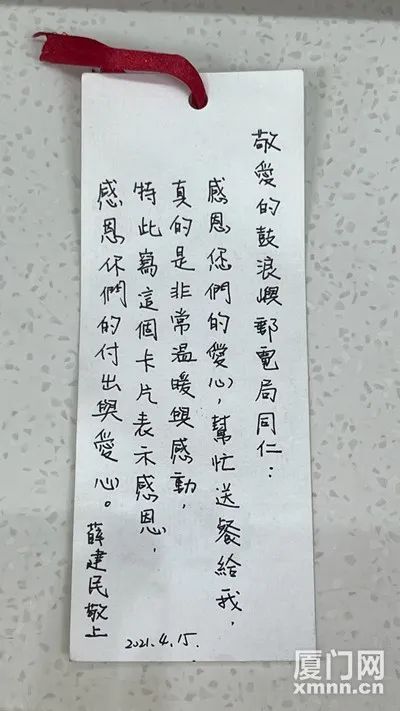 敬愛的鼓浪嶼郵電局同仁：
感恩您們的愛心，幫忙送餐給我，
真的是非常溫暖與感動，
特此寫這個卡片表示感恩，
感恩你們的付出與愛心。
薛建民敬上
2021.4.15.
厦门网
xmnn.cn